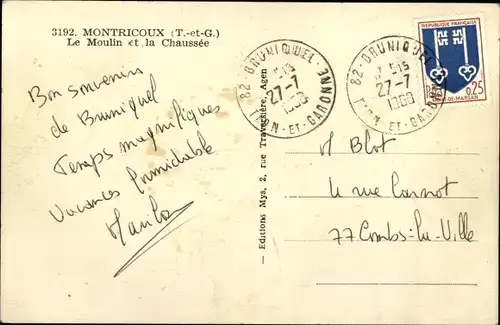 3192. MONTRICOUX (T.-et-G.)
Le Moulin et la Chaussée
Bon souvenir
de Bruniquel
Temps magnifiques
Vacances formidable
— Editions Mys, 2, rue Traversière, Agen
82 - BRUNIQUEL
27-7
TARN-ET-GARONNE
82 - BRUNIQUEL
27-7
TARN-ET-GARONNE
REPUBLIQUE FRANÇAISE
0,25
DE-MARSAN
M Blot
4 rue Carnot
77 Combs-la-Ville